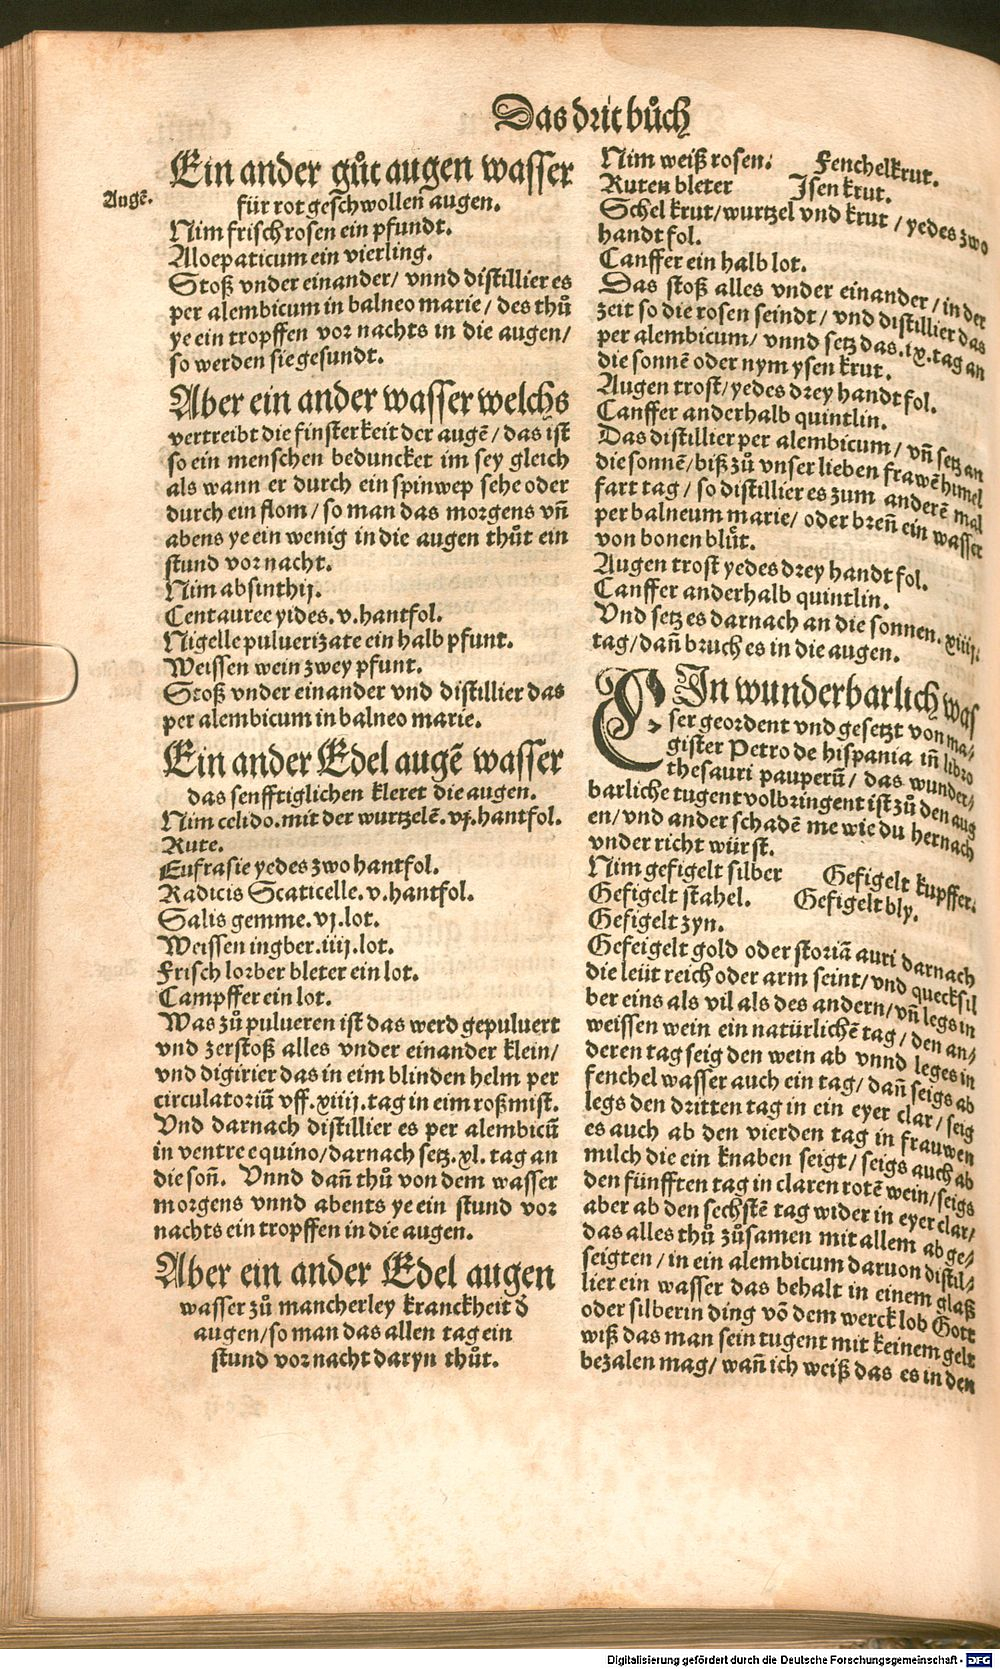 Das drit bůch
Ein ander gůt augen wasser
Augē.
für rot geschwollen augen.
Nim frisch rosen ein pfundt.
Aloepaticum ein vierling.
Stoß vnder einander/ vnnd distillier es
per alembicum in balneo marie/ des thů
ye ein tropffen vor nachts in die augen/
so werden sie gesundt.
Aber ein ander wasser welchs
vertreibt die finsterkeit der augē/ das ist
so ein menschen beduncket im sey gleich
als wann er durch ein spinwep sehe oder
durch ein flom/ so man das morgens vn̄
abens ye ein wenig in die augen thůt ein
stund vor nacht.
Nim absinthij.
Centauree yides. v. hantfol.
Nigelle puluerizate ein halb pfunt.
Weissen wein zwey pfunt.
Stoß vnder einander vnd distillier das
per alembicum in balneo marie.
Ein ander Edel augē wasser
das senfftiglichen kleret die augen.
Nim celido. mit der wurtzelē. vj. hantfol.
Rute.
Eufrasie yedes zwo hantfol.
Radicis Scaticelle. v. hantfol.
Salis gemme. vj. lot.
Weissen ingber. iiij. lot.
Frisch lorber bleter ein lot.
Campffer ein lot.
Was zů pulueren ist das werd gepuluert
vnd zerstoß alles vnder einander klein/
vnd digirier das in eim blinden helm per
circulatoriū vff. xiiij. tag in eim roßmist.
Vnd darnach distillier es per alembicū
in ventre equino/ darnach setz. xl. tag an
die son̄. Vnnd dan̄ thů von dem wasser
morgens vnnd abents ye ein stund vor
nachts ein tropffen in die augen.
Aber ein ander Edel augen
wasser zů mancherley kranckheit d̄
augen/ so man das allen tag ein
stund vor nacht daryn thůt.
Nim weiß rosen. Fenchelkrut.
Ruten bleter Isen krut.
Schel krut/ wurtzel vnd krut/ yedes zwo
handt fol.
Canffer ein halb lot.
Das stoß alles vnder einander/ in der
zeit so die rosen seindt/ vnd distillier das
per alembicum/ vnnd setz das. ix. tag an
die sonnē oder nym ysen krut.
Augen trost/ yedes drey handt fol.
Canffer anderhalb quintlin.
Das distillier per alembicum/ vn̄ setz an
die sonnē/ biß zů vnser lieben frawē himel
fart tag/ so distillier es zum anderē mal
per balneum marie/ oder bren̄ ein wasser
von bonen blůt.
Augen trost yedes drey handt fol.
Canffer anderhalb quintlin.
Vnd setz es darnach an die sonnen. xiiij.
tag/ dan̄ bruch es in die augen.
EIn wunderbarlich was
ser geordent vnd gesetzt von ma/
gister Petro de hispania in̄ libro
thesauri pauperū/ das wunder/
barliche tugent volbringent ist zů den aug
en/ vnd ander schadē me wie du hernach
vnder richt würst.
Nim gefigelt silber Gefigelt kupffer.
Gefigelt stahel. Gefigelt bly.
Gefigelt zyn.
Gefeigelt gold oder storiā auri darnach
die leüt reich oder arm seint/ vnd quecksil
ber eins als vil als des andern/ vn̄ legs in
weissen wein ein natürlichē tag/ den an/
deren tag seig den wein ab vnnd leges in
fenchel wasser auch ein tag/ dan̄ seigs ab
legs den dritten tag in ein eyer clar/ seig
es auch ab den vierden tag in frauwen
milch die ein knaben seigt/ seigs auch ab
den fünfften tag in claren rotē wein/ seigs
aber ab den sechstē tag wider in eyer clar/
das alles thů zůsamen mit allem ab ge/
seigten/ in ein alembicum daruon distil/
lier ein wasser das behalt in einem glaß
oder silberin ding vō dem werck lob Gott
wiß das man sein tugent mit keinem gelt
bezalen mag/ wan̄ ich weiß das es in den
Digitalisierung gefördert durch die Deutsche Forschungsgemeinschaft - DFG